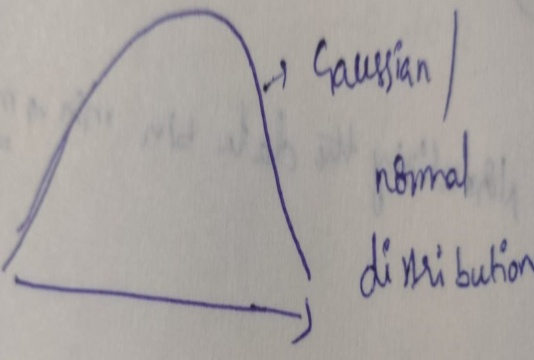 Gaussian /
normal
distribution